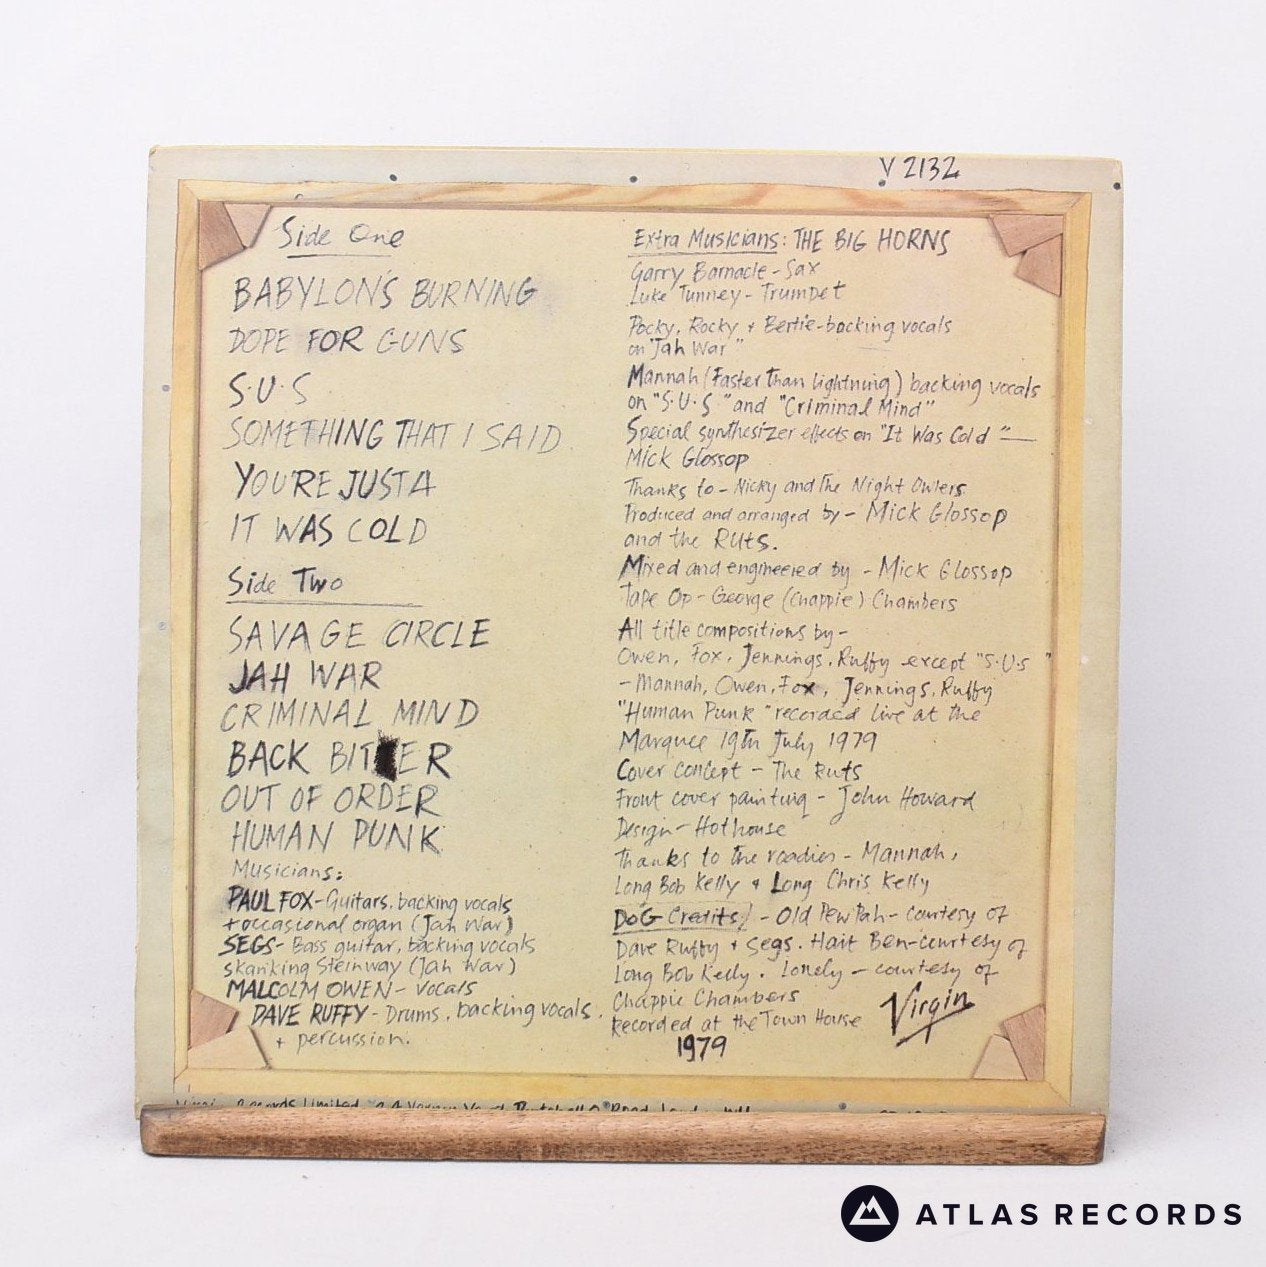 V 2132
Side One
BABYLON'S BURNING
DOPE FOR GUNS
S·U·S
SOMETHING THAT I SAID
YOU'RE JUST A
IT WAS COLD
Side Two
SAVAGE CIRCLE
JAH WAR
CRIMINAL MIND
BACK BITER
OUT OF ORDER
HUMAN PUNK
Musicians:
PAUL FOX-Guitars, backing vocals
+ occasional organ (Jah War)
SEGS- Bass guitar, backing vocals
skanking Steinway (Jah War)
MALCOLM OWEN- vocals
DAVE RUFFY- Drums, backing vocals.
+ percussion.
Extra Musicians: THE BIG HORNS
Garry Barnacle - Sax
Luke Tunney - Trumpet
Pocky, Rocky + Bertie-backing vocals
on "Jah War"
Mannah (Faster than lightning) backing vocals
on "S·U·S" and "Criminal Mind"
Special synthesizer effects on "It Was Cold" —
Mick Glossop
Thanks to - Nicky and The Night Owlers
Produced and arranged by - Mick Glossop
and the Ruts.
Mixed and engineered by - Mick Glossop
Tape Op - George (Chappie) Chambers
All title compositions by -
Owen, Fox, Jennings, Ruffy except "S·U·S"
- Mannah, Owen, Fox, Jennings, Ruffy
"Human Punk" recorded live at the
Marquee 19th July 1979
Cover concept - The Ruts
Front cover painting - John Howard
Design - Hothouse
Thanks to the roadies - Mannah,
Long Bob Kelly + Long Chris Kelly
DOG Credits! - Old Pew Pah - courtesy of
Dave Ruffy + Segs. Hait Ben-courtesy of
Long Bob Kelly. Lonely - courtesy of
Chappie Chambers
Recorded at the Town House
1979
Virgin
Records Limited
ATLAS RECORDS